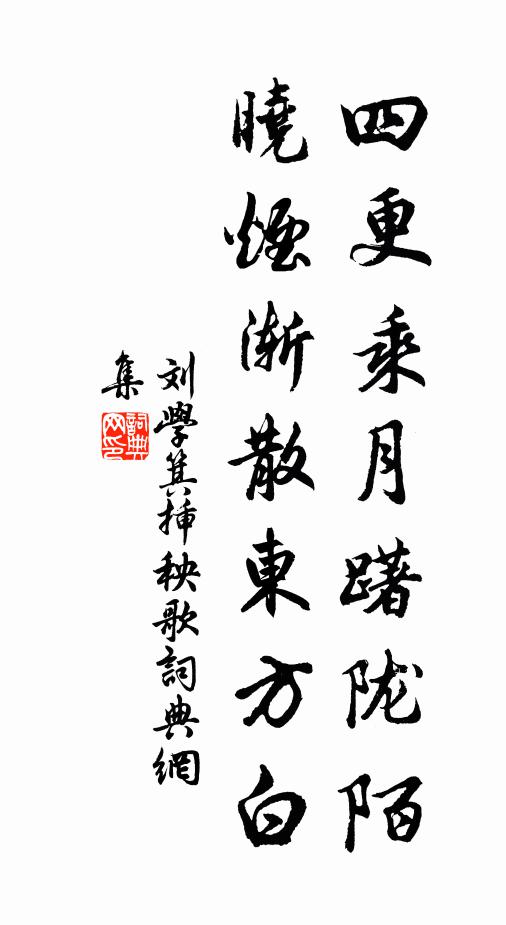 四更乘月躇陇陌
曉煙渐散東方白
刘學箕插秧歌詞典網
集
詞典
网印